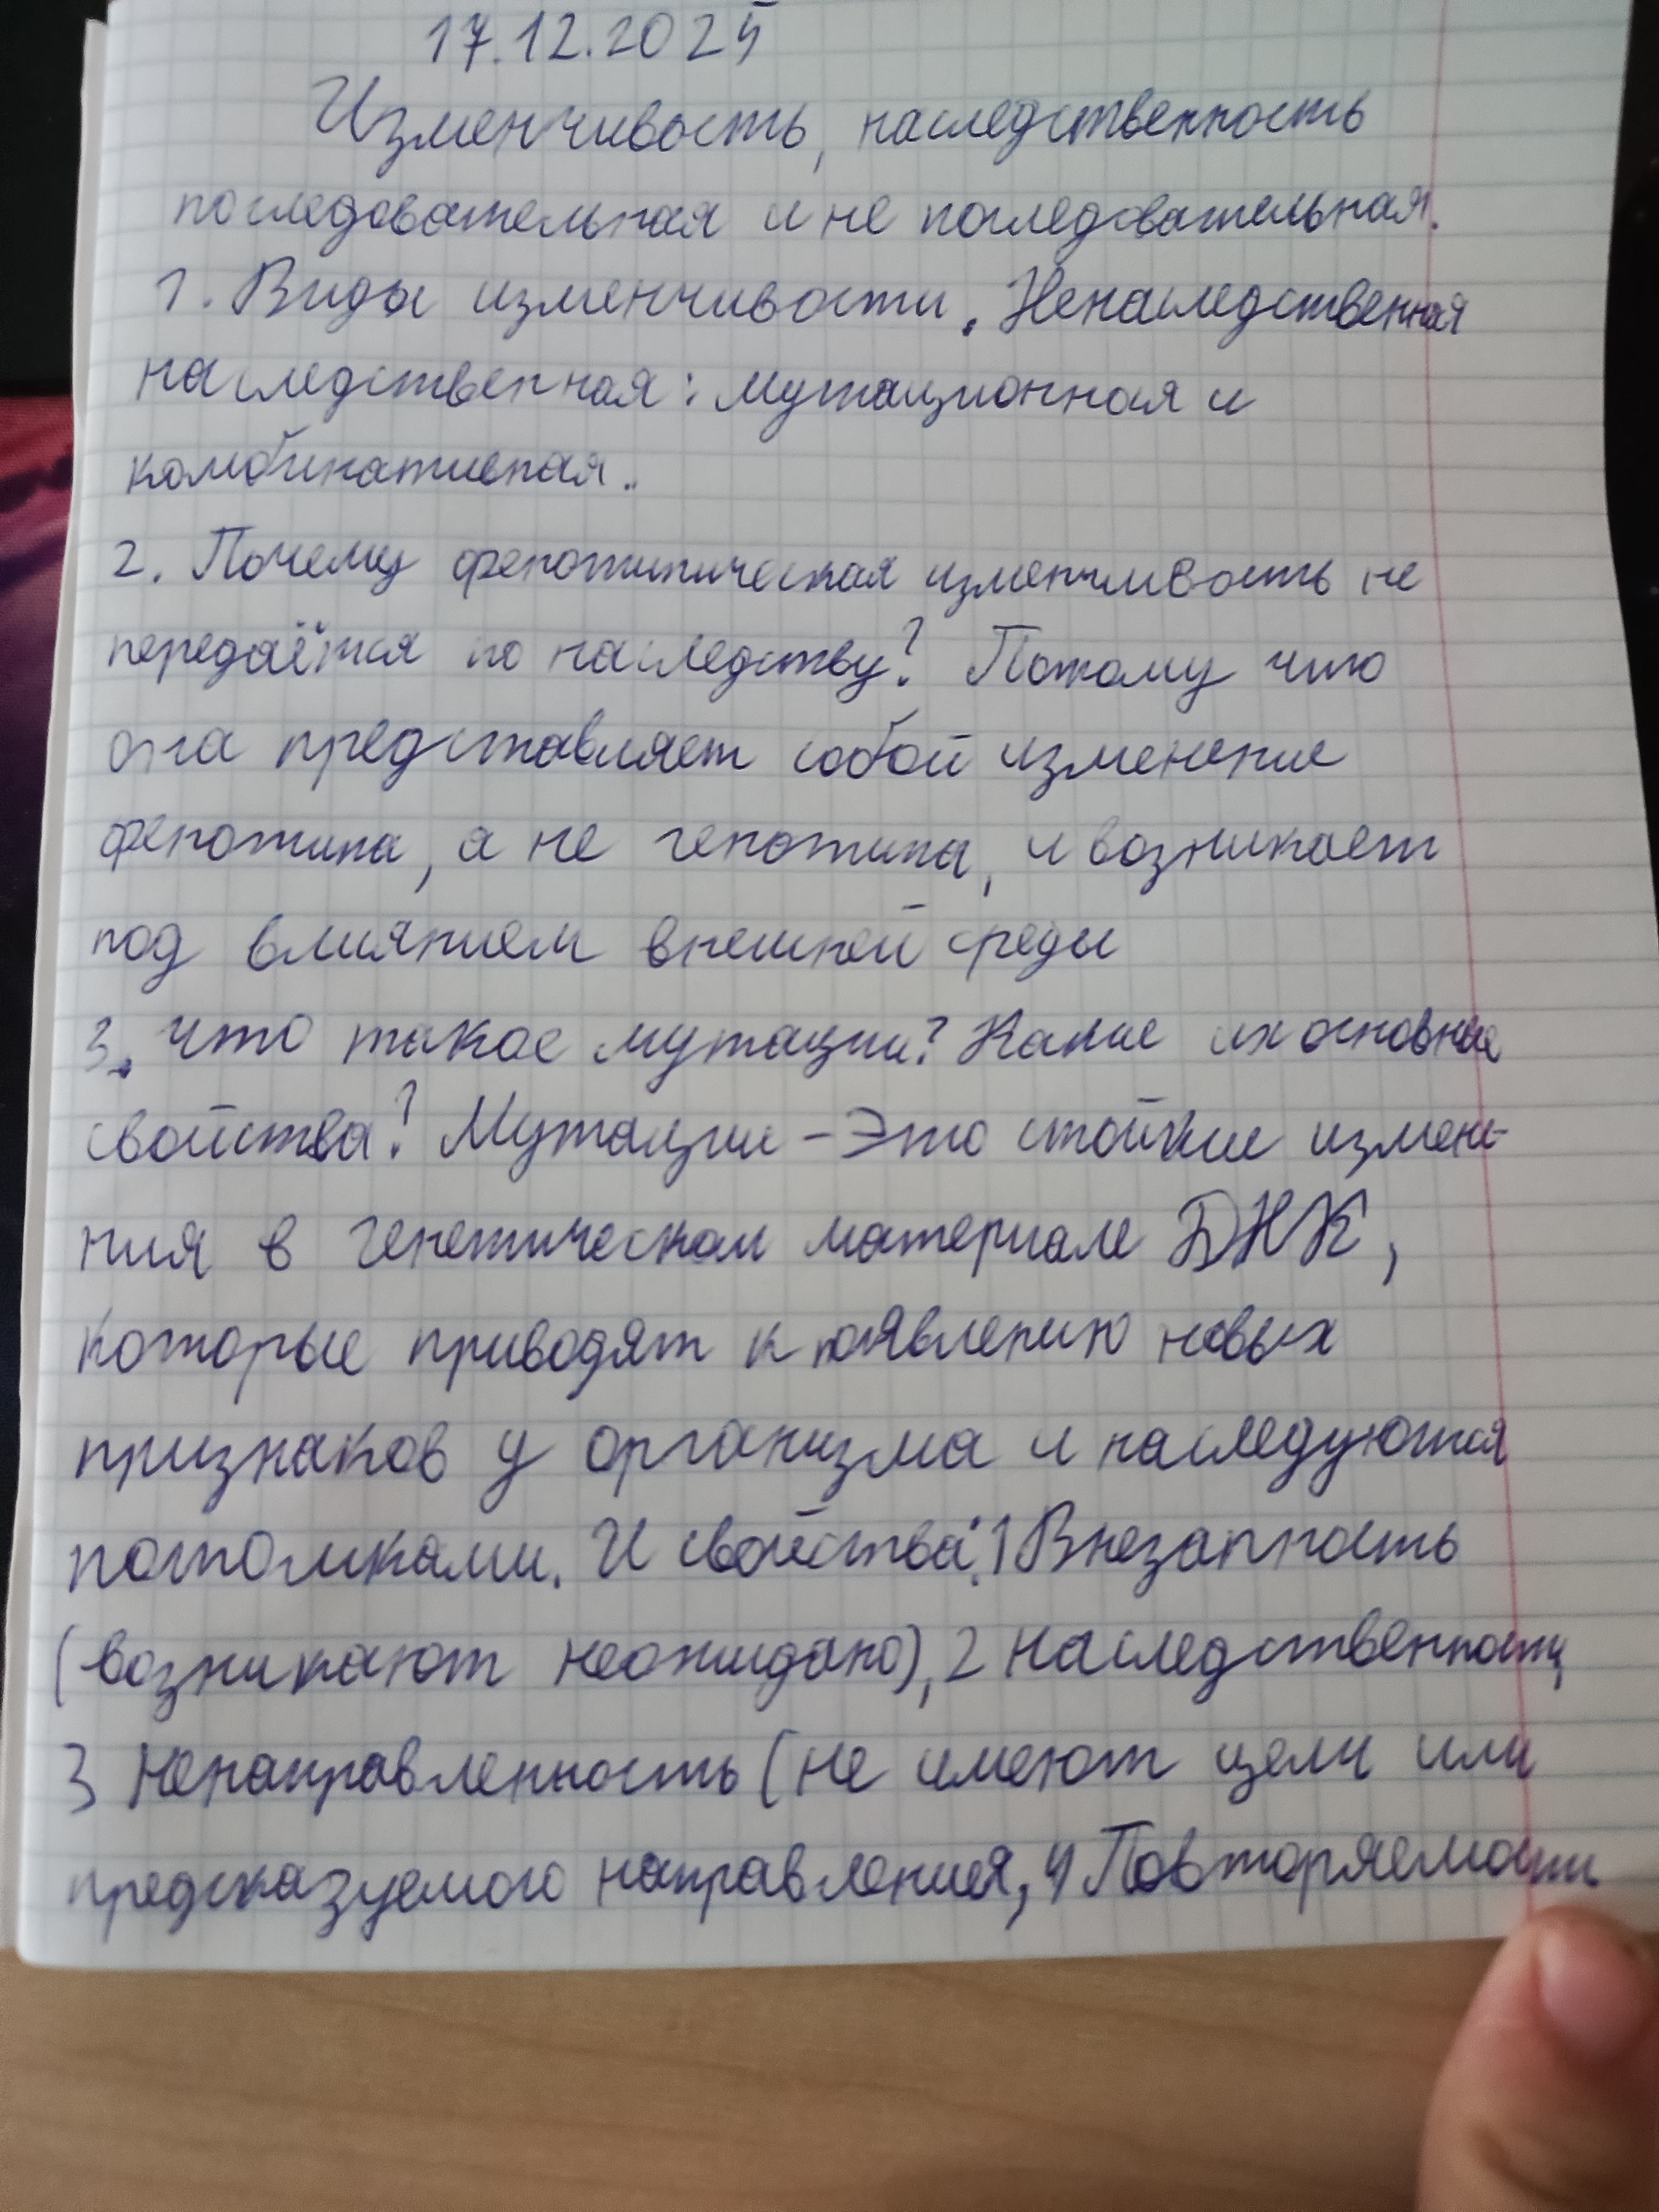 17.12.2025
Изменчивость, наследственность
последовательная и не последовательная.
1. Виды изменчивости. Ненаследственная
наследственная: мутационная и
комбинативная.
2. Почему фенотипическая изменчивость не
передаётся по наследству? Потому что
она представляет собой изменение
фенотипа, а не генотипа, и возникает
под влиянием внешней среды
3. Что такое мутации? Какие их основные
свойства? Мутации – Это стойкие измене-
ния в генетическом материале ДНК,
которые приводят к появлению новых
признаков у организма и наследуются
потомками. И свойства: 1 Внезапность
(возникают неожидано), 2 наследственность,
3 Ненаправленность (не имеют цели или
предсказуемого направления, 4 Повторяемость